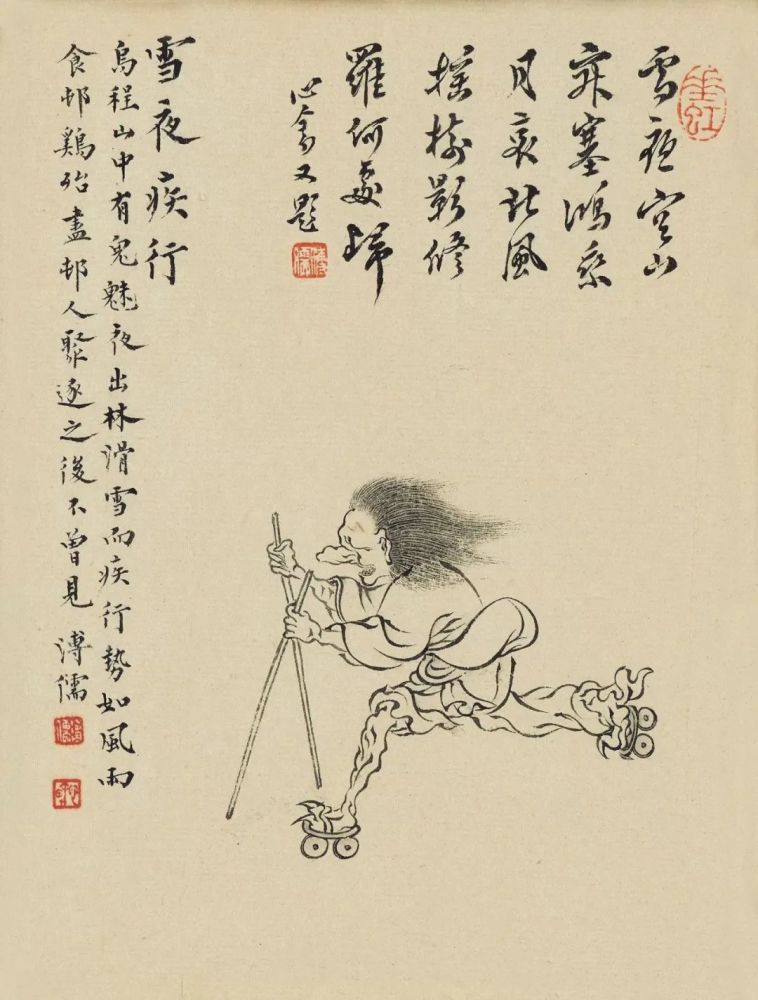 雪夜空山
寂塞鴻乘
月哀北風
搖樹影修
羅何處歸
心畬又題
溥儒
雪夜疾行
烏程山中有鬼魅夜出林滑雪而疾行勢如風雨
食邨鷄殆盡邨人聚逐之後不曾見 溥儒